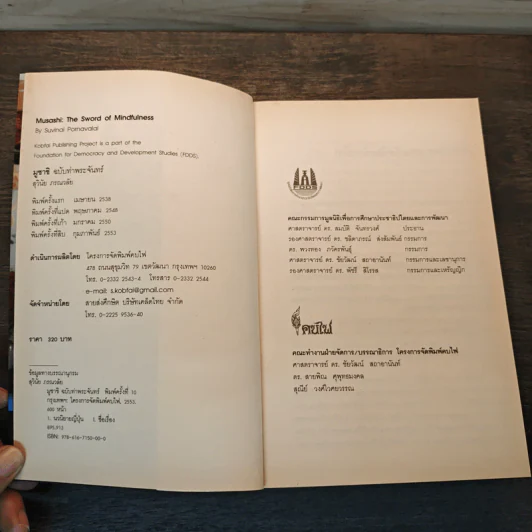 Musashi: The Sword of Mindfulness
By Suvinai Pornavalai
Kobfai Publishing Project is a part of the
Foundation for Democracy and Development Studies (FDDS).
มูซาชิ ฉบับท่าพระจันทร์
สุวินัย ภรณวลัย
พิมพ์ครั้งแรก เมษายน 2538
พิมพ์ครั้งที่แปด พฤษภาคม 2548
พิมพ์ครั้งที่เก้า มกราคม 2550
พิมพ์ครั้งที่สิบ กุมภาพันธ์ 2553
ดำเนินการผลิตโดย โครงการจัดพิมพ์คบไฟ
478 ถนนสุขุมวิท 79 เขตวัฒนา กรุงเทพฯ 10260
โทร. 0-2332 2543-4 โทรสาร 0-2332 2544
e-mail: s.kobfai@gmail.com
จัดจำหน่ายโดย สายส่งศึกษิต บริษัทเคล็ดไทย จำกัด
โทร. 0-2225 9536-40
ราคา 320 บาท
ข้อมูลทางบรรณานุกรม
สุวินัย ภรณวลัย
มูซาชิ ฉบับท่าพระจันทร์ พิมพ์ครั้งที่ 10
กรุงเทพฯ: โครงการจัดพิมพ์คบไฟ, 2553.
400 หน้า
1. นวนิยายญี่ปุ่น I. ชื่อเรื่อง
895.913
ISBN: 978-616-7150-05-0
FDDS
คณะกรรมการมูลนิธิเพื่อการศึกษาประชาธิปไตยและการพัฒนา
ศาสตราจารย์ ดร. สมบัติ จันทรวงศ์ ประธาน
รองศาสตราจารย์ ดร. ชลิดาภรณ์ ส่งสัมพันธ์ กรรมการ
ดร. พวงทอง ภวัครพันธุ์ กรรมการ
ศาสตราจารย์ ดร. ชัยวัฒน์ สถาอานันท์ กรรมการและเลขานุการ
รองศาสตราจารย์ ดร. พัชรี สิโรรส กรรมการและเหรัญญิก
คบไฟ
คณะทำงานฝ่ายจัดการ/บรรณาธิการ โครงการจัดพิมพ์คบไฟ
ศาสตราจารย์ ดร. ชัยวัฒน์ สถาอานันท์
ดร. สายพิณ ศุพุทธมงคล
สุณีย์ วงศ์ไวศยวรรณ